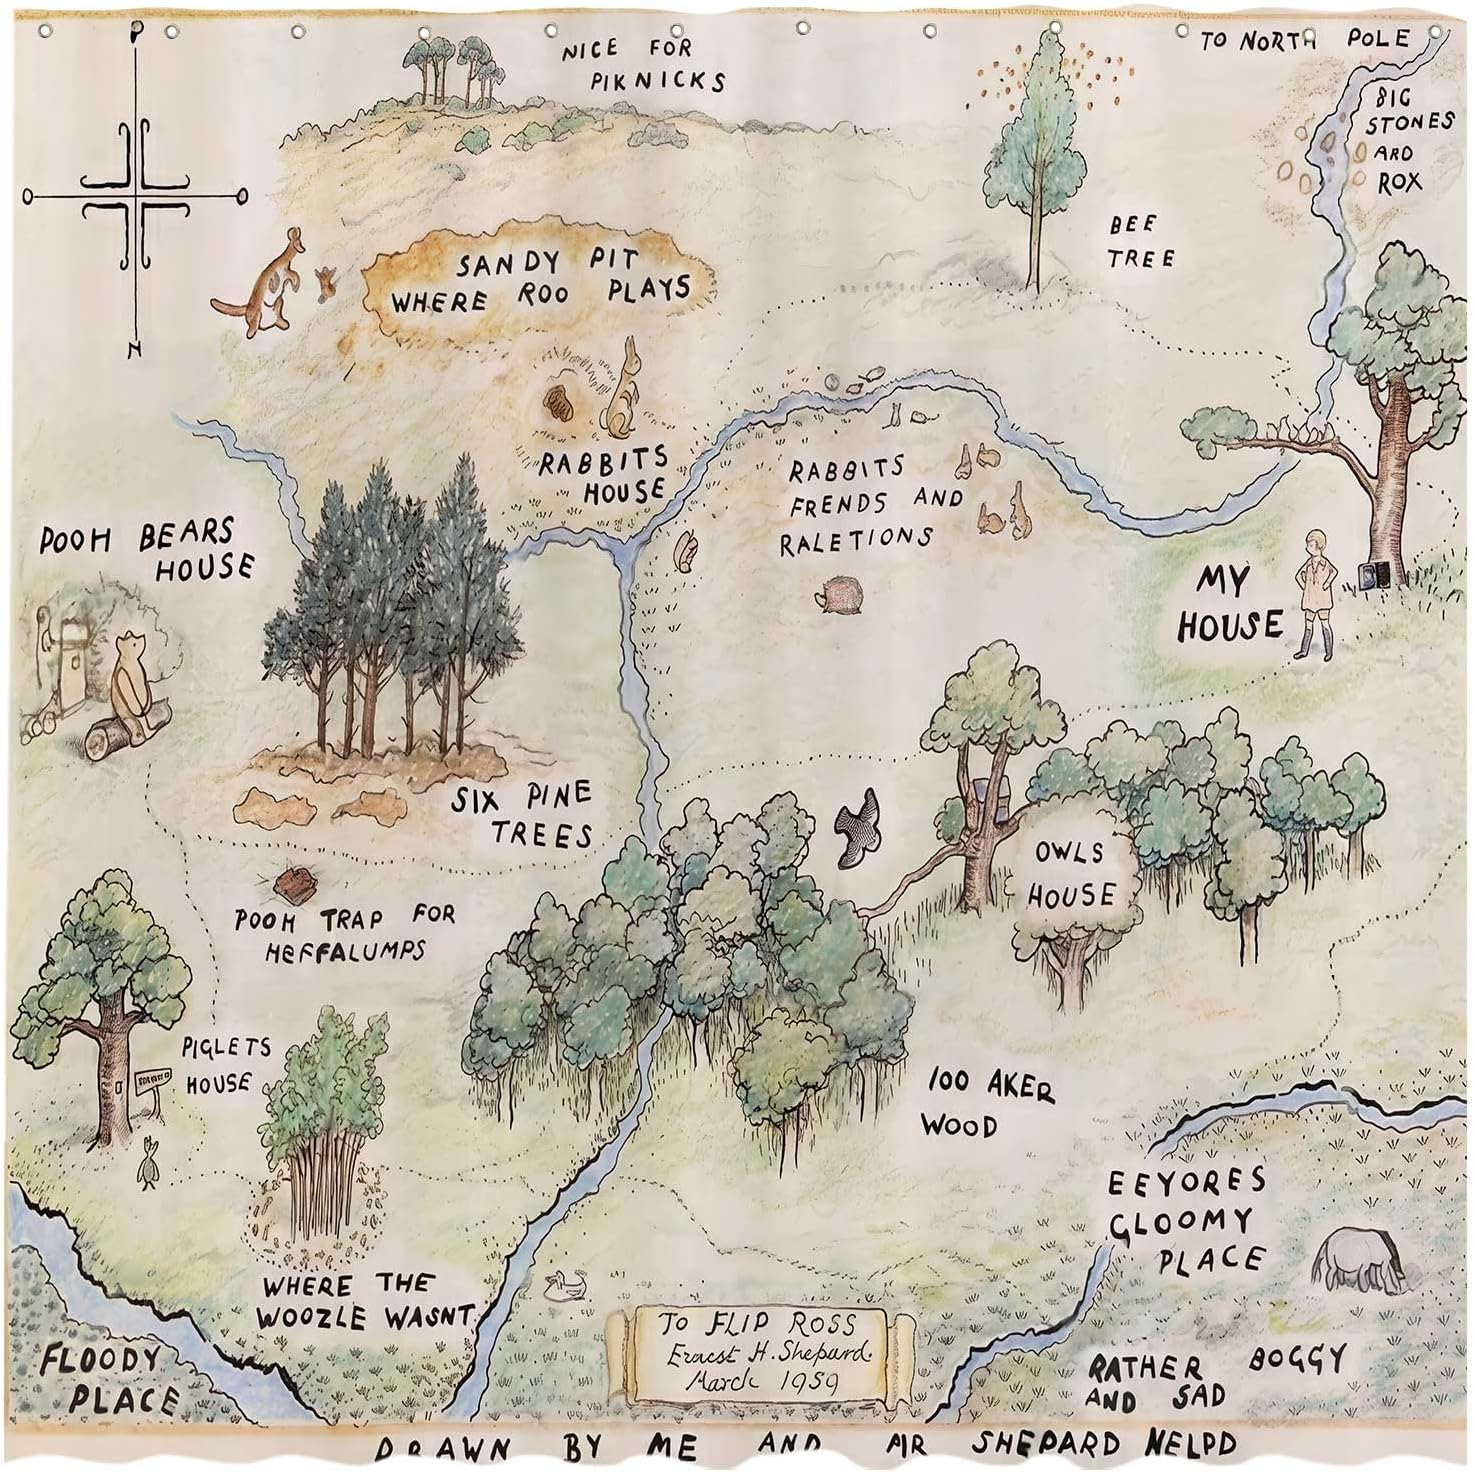 P
N
NICE FOR
PIKNICKS
TO NORTH POLE
BIG
STONES
ARD
ROX
BEE
TREE
SANDY PIT
WHERE ROO PLAYS
RABBITS
HOUSE
RABBITS
FRENDS AND
RALETIONS
POOH BEARS
HOUSE
MY
HOUSE
SIX PINE
TREES
OWLS
HOUSE
POOH TRAP FOR
HEFFALUMPS
PIGLETS
HOUSE
100 AKER
WOOD
EEYORES
GLOOMY
PLACE
WHERE THE
WOOZLE WASNT
FLOODY
PLACE
TO FLIP ROSS
Ernest H. Shepard.
March 1959
RATHER BOGGY
AND SAD
DRAWN BY ME AND MR SHEPARD HELPD